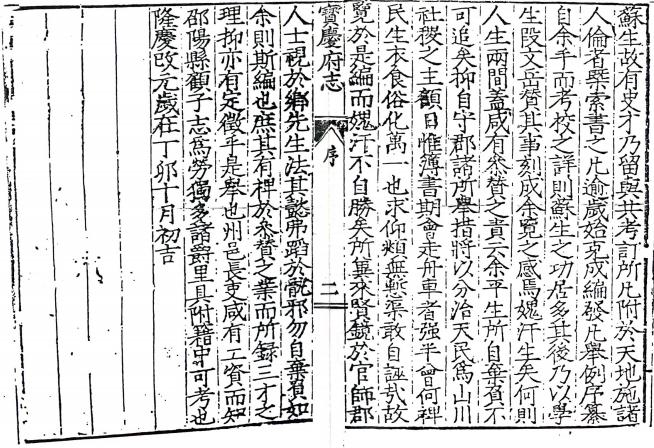 蘇生故有史才乃留與共考訂所凡附於天地施諸
人倫者槩索書之凡逾歲始克成編發凡舉例序纂
自余手而考校之詳則蘇生之功居多其後乃以學
生段文岳賛其事刻成余覽之感焉媿汗生矣何則
人生兩間蓋咸有叅賛之責云余平生所自棄負不
可追矣抑自守郡諸所舉措將以分治天民爲山川
社稷之主顧日惟簿書期會走舟車者强半曾何裨
民生衣食俗化萬一也求仰類無慙渠敢自誣哉故
覽於是編而媿汗不自勝矣所兾來賢鏡於官師郡
寶慶府志
序
二
人士視於鄉先生法其懿弗蹈於詭邪勿自棄負如
余則斯編也庶其有裨於叅賛之業而所錄三才之
理抑亦有足徵乎是舉也州邑長吏咸有工資而知
邵陽縣顧子志爲勞獨多諸爵里具附籍中可考也
隆慶改元歲在丁卯十月初吉